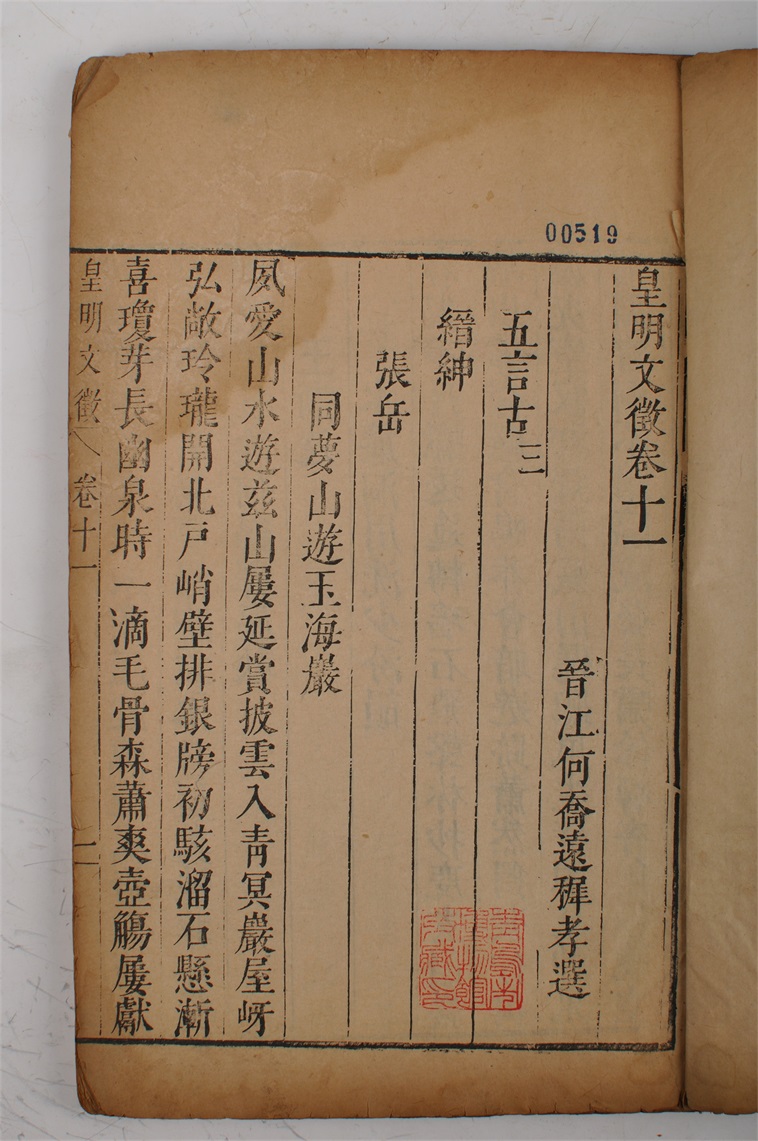 00519
皇明文徵卷十一
晉江何喬遠穉孝選
五言古三
縉紳
張岳
同夢山遊玉海巖
夙愛山水遊茲山屢延賞披雲入青冥巖屋岈
弘敞玲瓏開北戶峭壁排銀牓初駭溜石懸漸
喜瓊芽長幽泉時一滴毛骨森蕭爽壺觴屢獻
皇明文徵 卷十一 一